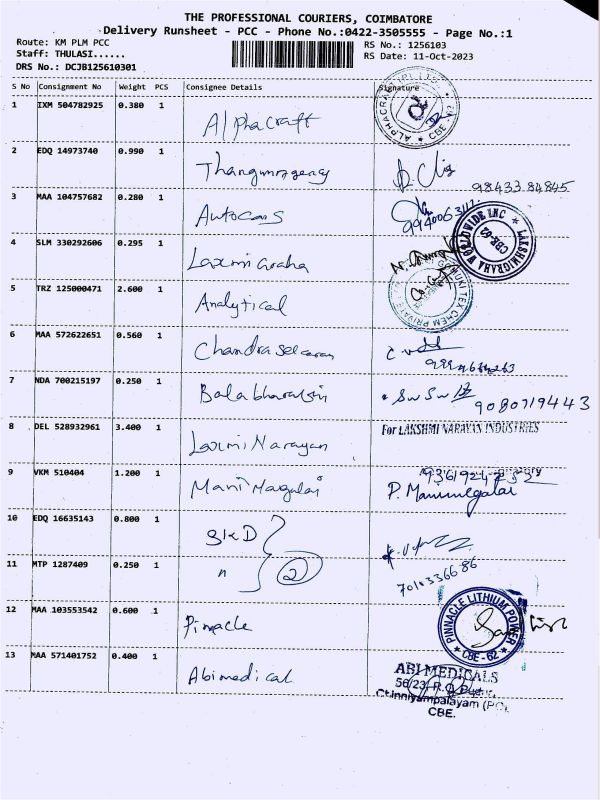 THE PROFESSIONAL COURIERS, COIMBATORE
Delivery Runsheet - PCC - Phone No.:0422-3505555 - Page No.:1
Route: KM PLM PCC
RS No.: 1256103
Staff: THULASI......
RS Date: 11-Oct-2023
DRS No.: DCJB125610301
S No Consignment No Weight PCS Consignee Details Signature
1 IXM 504782925 0.380 1 Alphacraft
CBE
2 EDQ 14973740 0.990 1
98433 84845
3 MAA 104757682 0.280 1 Autocans
4 SLM 330292606 0.295 1 Laxmi Graha
LAKSHMIGRAHA WORLDWIDE INC
CBE-62
5 TRZ 125000471 2.600 1 Analytical
6 MAA 572622651 0.560 1 Chandrasekaran
7 NDA 700215197 0.250 1
9080719443
8 DEL 528932961 3.400 1 Laxmi Narayan
For LAKSHMI NARAYAN INDUSTRIES
9 VKM 510404 1.200 1 Mani Magalai
10 EDQ 16635143 0.800 1 SKD
11 MTP 1287409 0.250 1 " 2
12 MAA 103553542 0.600 1 Pinnacle
PINNACLE LITHIUM POWER
CBE-62
13 MAA 571401752 0.400 1 Abimedical
ABI MEDICALS
56/23,
Ct.Inniyampalayam (PO),
CBE.